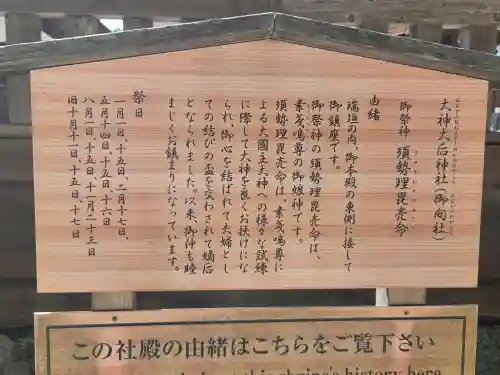 大神大后神社（御向社）
御祭神 須勢理毘売命
由緒
瑞垣の内、御本殿の東側に接して
御鎮座です。
御祭神の須勢理毘売命は、
素戔嗚尊の御娘神です。
須勢理毘売命は、素戔嗚尊に
よる大國主大神への様々な試練
に際して大神を良くお扶けにな
られ、御心を結ばれて夫婦とし
ての結びの盃を交わされて嫡后
となられました。以来御仲も睦
まじくお鎮まりになっています。
祭日
一月一日、十五日、二月十七日、
五月十四日、十五日、十六日
八月一日、十五日、十一月二十三日
旧十月十一日、十五日、十七日
この社殿の由緒はこちらをご覧下さい
this shrine's history here